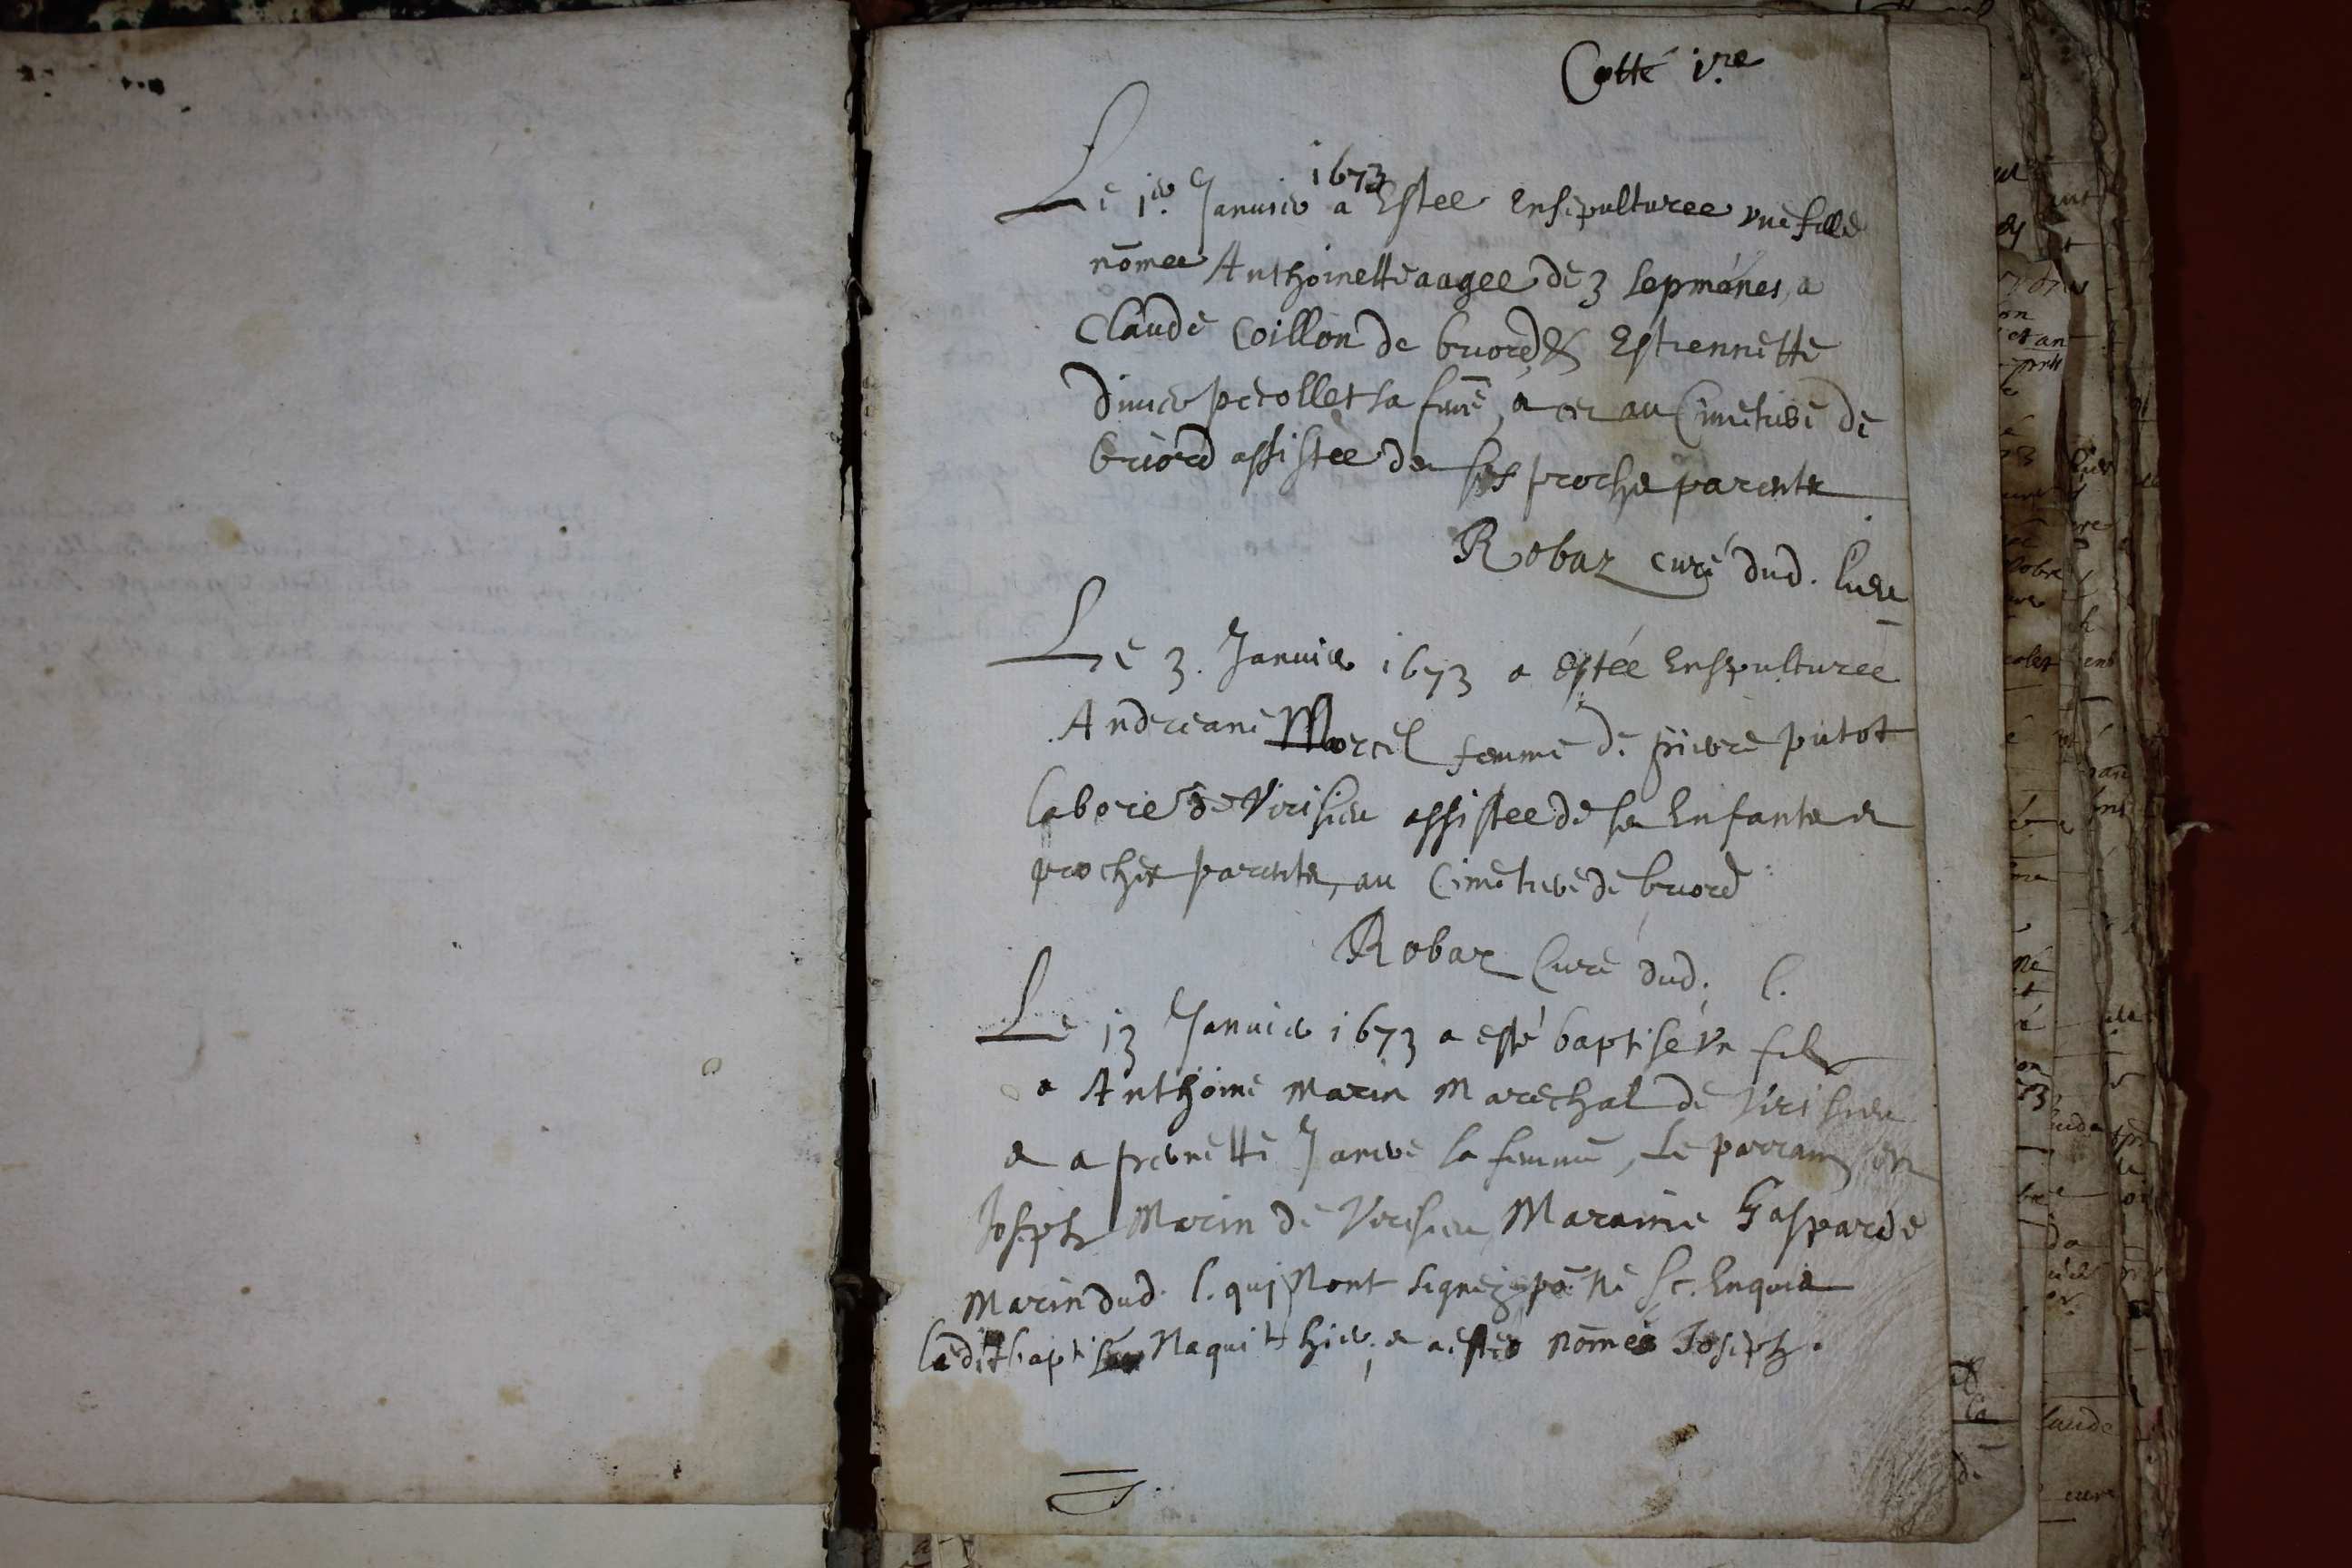 Cotté 1re
1673
Le 1er Januier a Estee Ensepulturee vne fille
nõmee Anthoinette aagee de 3 sepmenes, a
Claude Coillon de briord, & Estiennette
percollet sa feme, au Cimetiere de
briord assistee de ses proche parents
Robaz curé dud. lieu
Le 3. Januier 1673 a estée Ensepulturee
Andreane Morcel femme de pierre putot
labore de Virisieu assistee de se Enfants et
proches parents, au Cimetiere de briord
Robaz Curé dud. l.
Le 13 Januier 1673 a esté baptisé Vn fils
a Anthoine Marin Marechal de Virisieu
et a pernette Janire sa femme, le parrain
Joseph Marin de Virisieu Maraine Gasparde
Marin dud. l. qui Nont signez po. Ne sc. Enquis
ledit baptise Naquit hier, et a estes nõmes Joseph.